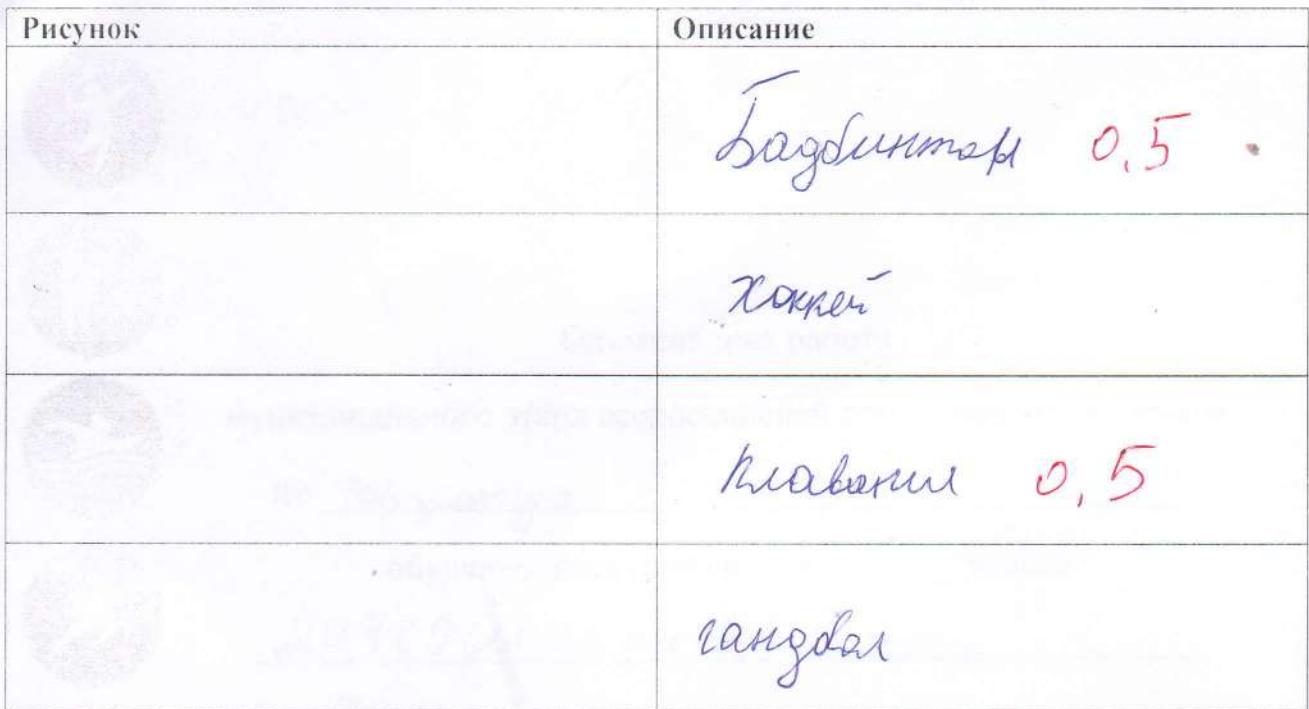 Рисунок Описание
Бадбинтон 0,5
хоккей
Плавания 0,5
гандбол